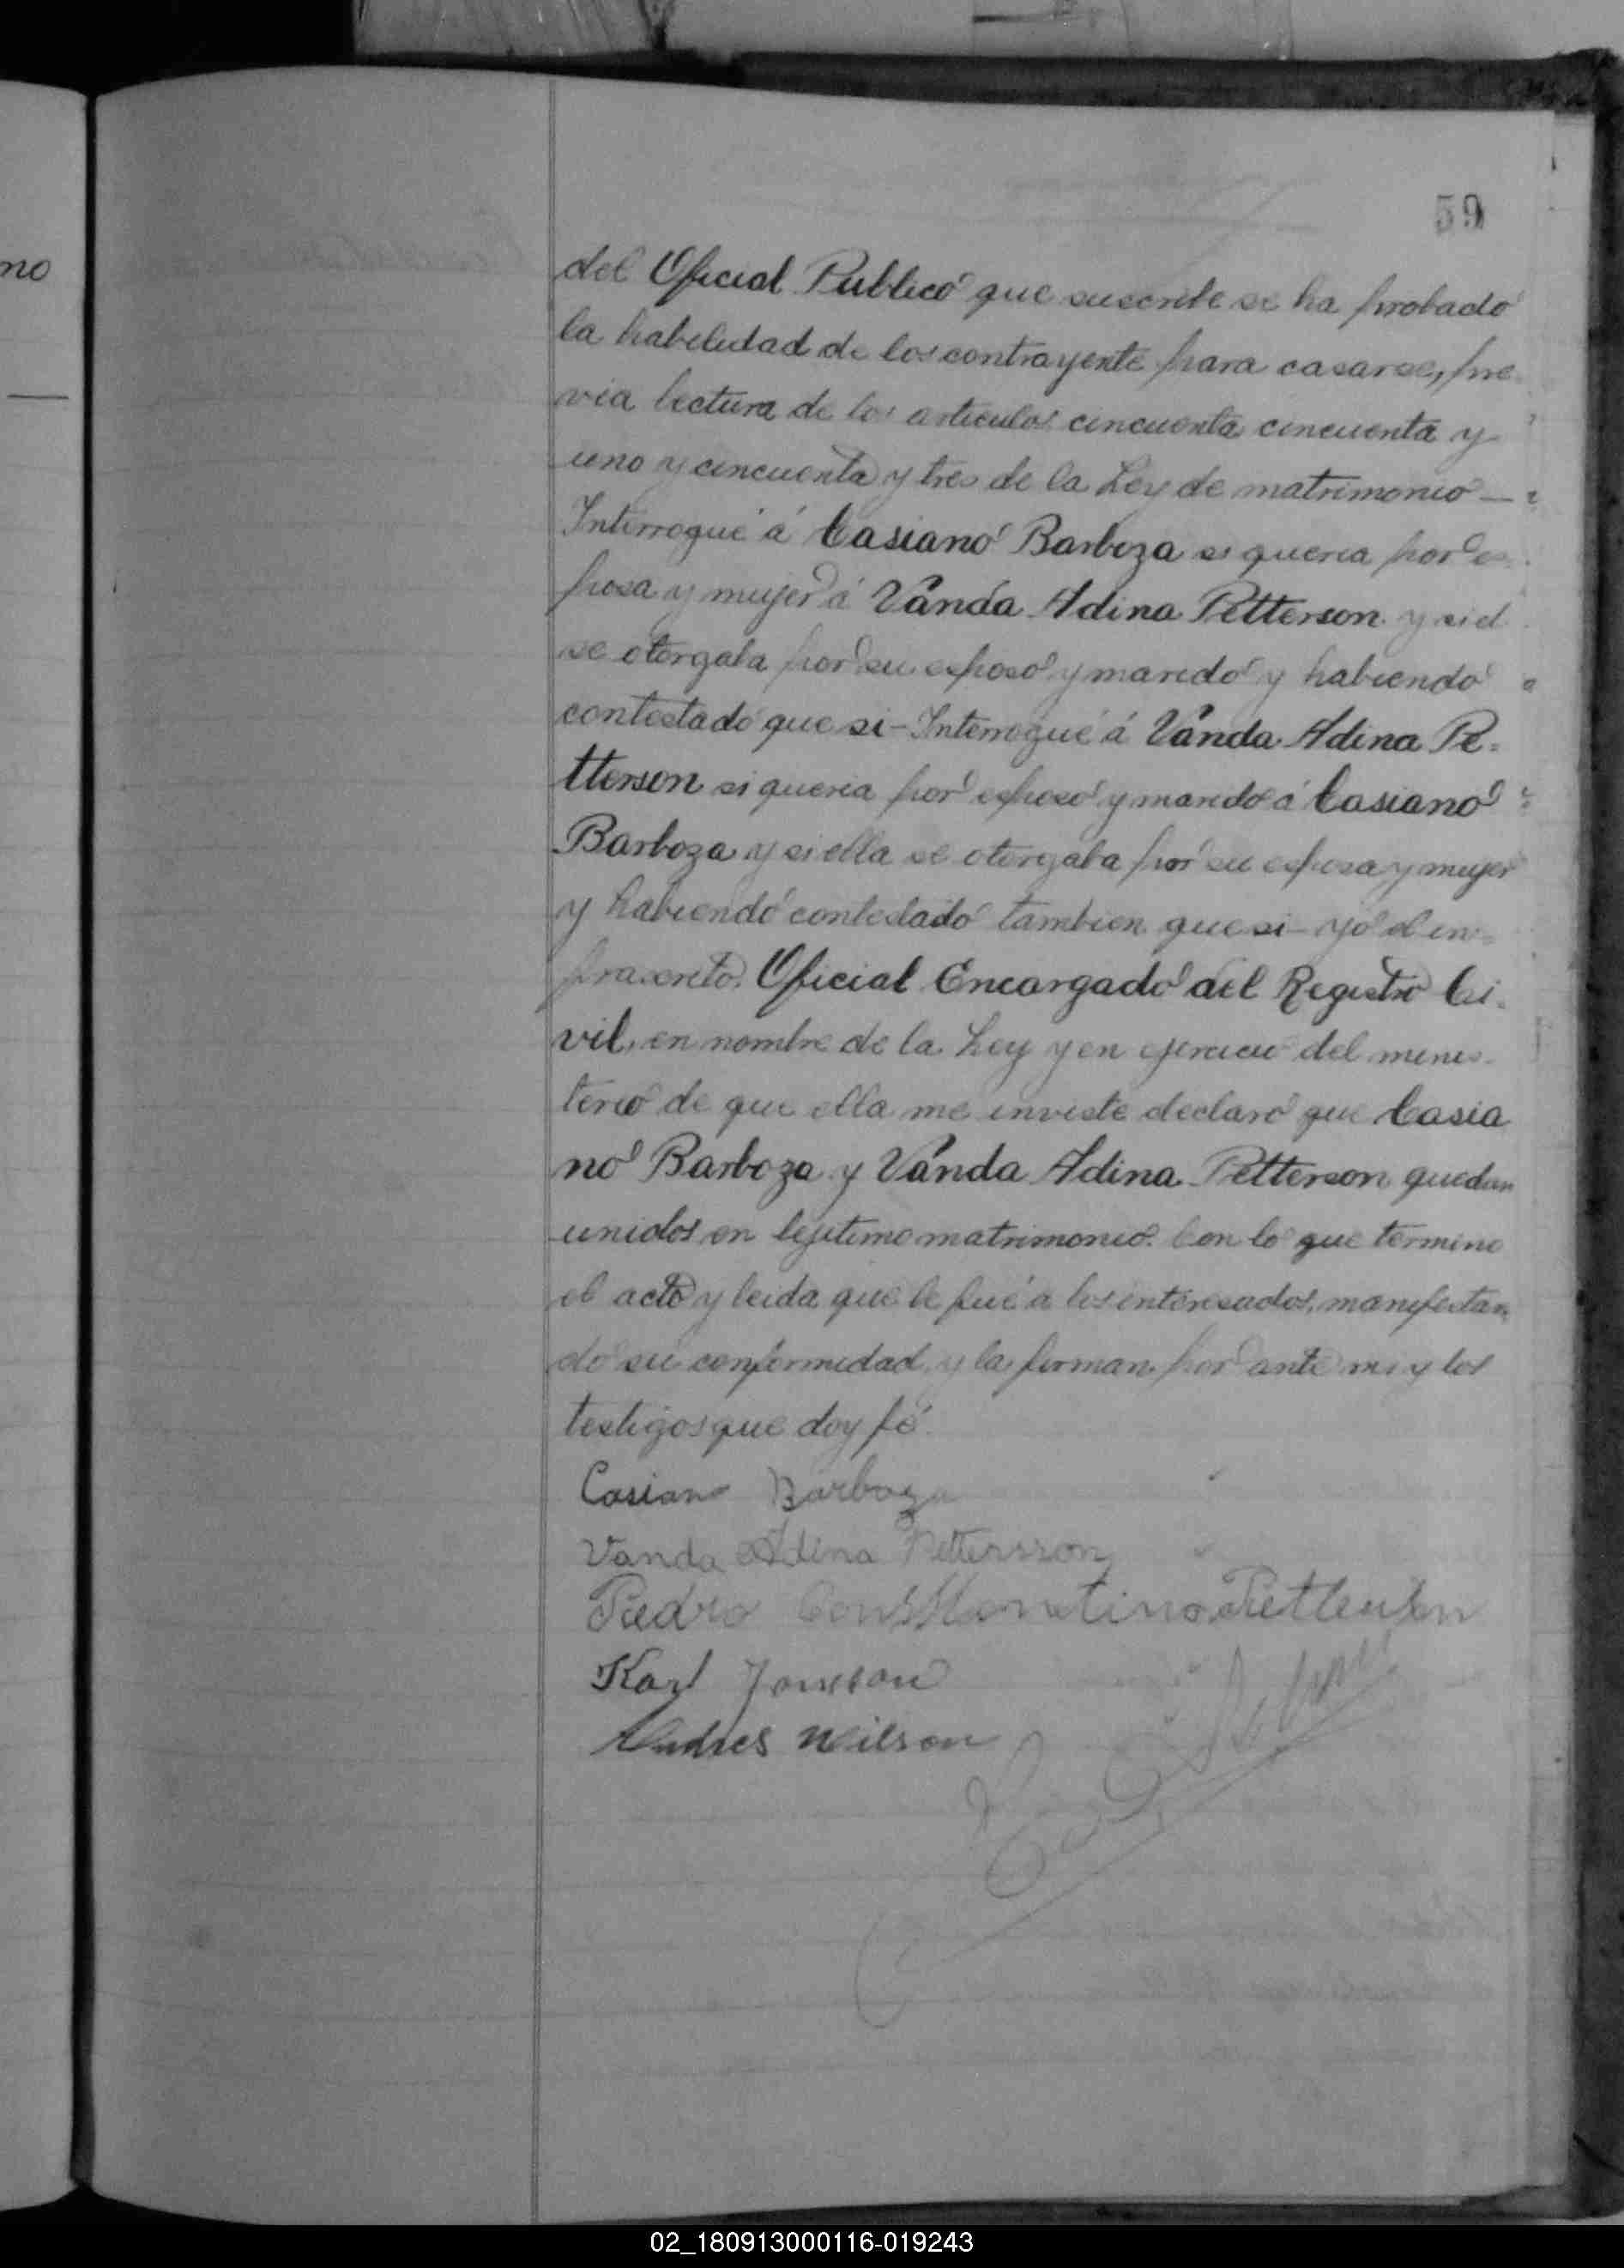 no
59
del Oficial Publico que suscribe se ha probado
la habilidad de los contrayente para casarse, pre-
via lectura de los articulos cincuenta cincuenta y
uno y cincuenta y tres de la Ley de matrimonio —
Interrogué á Casiano Barboza si queria por es-
posa y mujer á Vanda Adina Petterson y si el
se otorgaba por su esposo y marido y habiendo
contestado que si - Interrogué á Vanda Adina Pe=
tterson si queria por esposo y marido á Casiano
Barboza y si ella se otorgaba por su esposa y mujer
y habiendo contestado tambien que si - yo el in=
frascrito Oficial Encargado del Registro Ci-
vil, en nombre de la Ley y en ejercicio del minis-
terio de que ella me inviste declaro que Casia
no Barboza y Vanda Adina Petterson quedan
unidos en lejitimo matrimonio. Con lo que termino
el acto y leida que le fué a los interesados, manifestan
do su conformidad y la firman por ante mi y los
testigos que doy fé.
Casiano Barboza
Vanda Adina Pettersson
Pedro Petterson
Karl Jonsson
Andres Wilson
02_180913000116-019243